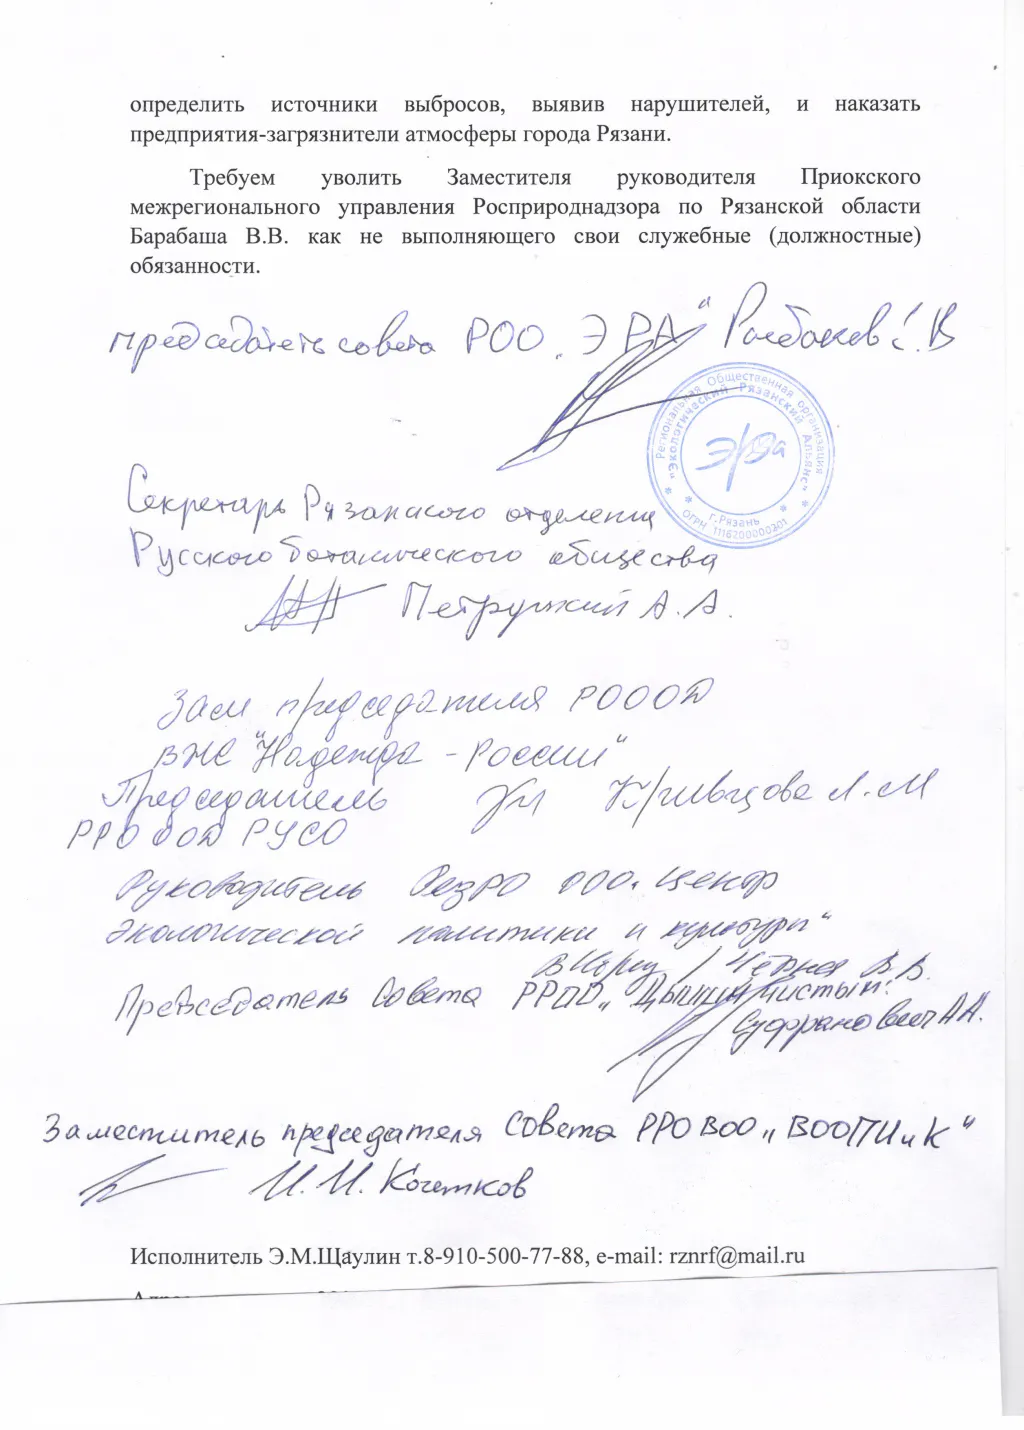 определить источники выбросов, выявив нарушителей, и наказать
предприятия-загрязнители атмосферы города Рязани.
Требуем уволить Заместителя руководителя Приокского
межрегионального управления Росприроднадзора по Рязанской области
Барабаша В.В. как не выполняющего свои служебные (должностные)
обязанности.
председатель совета РОО „ЭРА"
Региональная Общественная организация
"Экологический Рязанский Альянс"
Эра
г.Рязань
ОГРН 1116200000301
Секретарь Рязанского отделения
Русского ботанического общества
Петруцкий А.А.
Зам председателя РОООД
ВЖС "Надежда - России"
Председатель Кривцова Л.М
РРО ООД РУСО
Руководитель РязРО ООО „Центр
экологической политики и культуры"
Черная В.В.
Председатель Совета РРОД „Дышим чистым"
Суфранович А А.
Заместитель председателя Совета РРО ВОО „ВООПИиК"
И.И. Кочетков
Исполнитель Э.М.Щаулин т.8-910-500-77-88, e-mail: rznrf@mail.ru